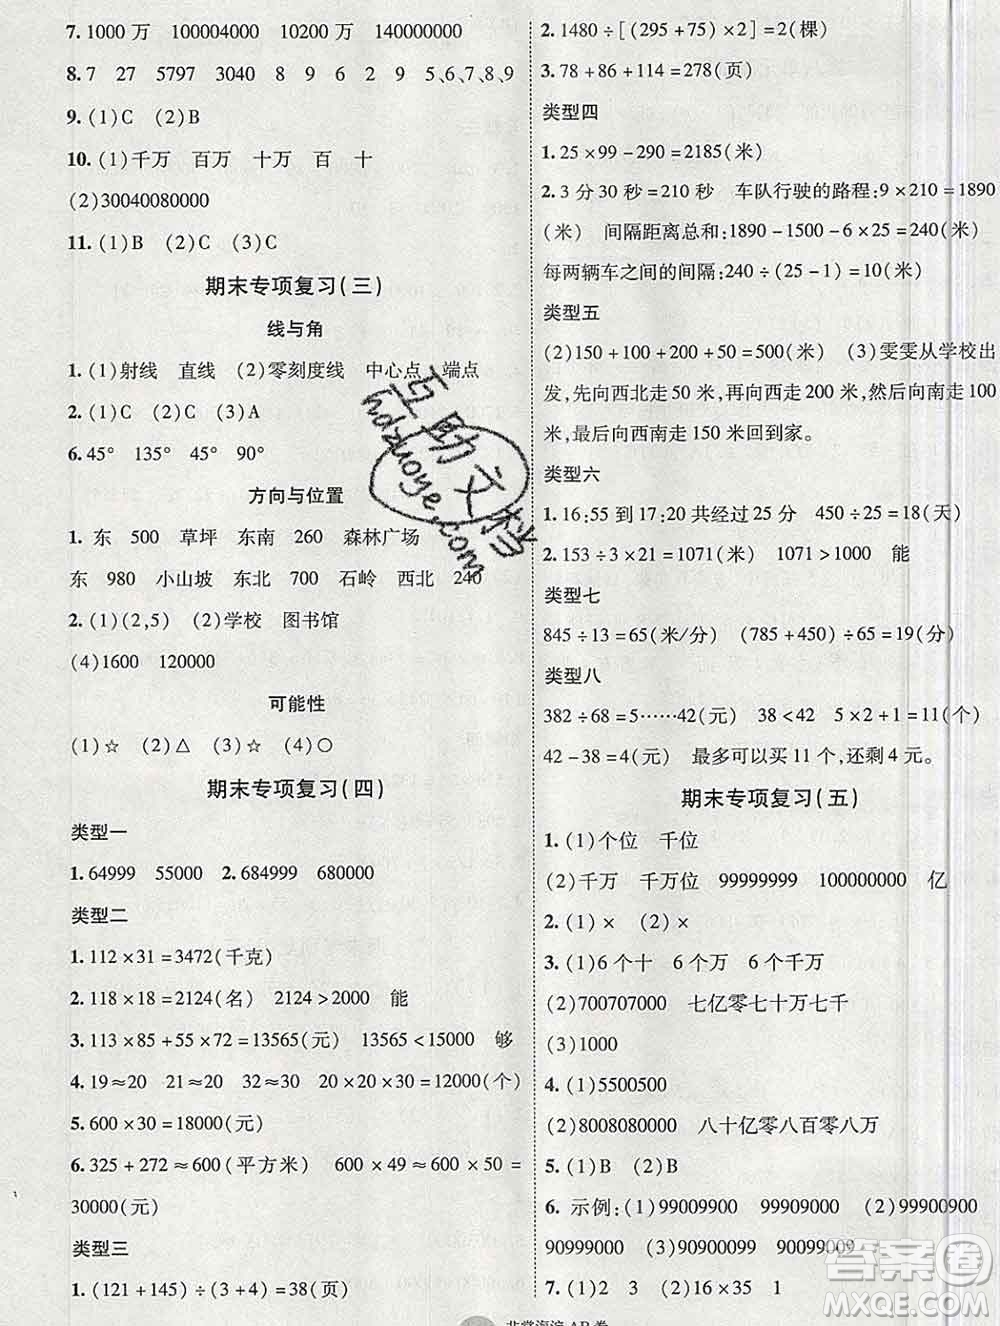 7. 1000 万　100004000　10200 万　140000000
8. 7　27　5797　3040　8　9　6　2　9　5、6、7、8、9
9. (1)C　(2)B
10. (1)千万　百万　十万　百　十
(2)30040080000
11. (1)B　(2)C　(3)C
期末专项复习(三)
线与角
1. (1)射线　直线　(2)零刻度线　中心点　端点
2. (1)C　(2)C　(3)A
6. 45°　135°　45°　90°
方向与位置
1. 东　500　草坪　东南　260　森林广场
东　980　小山坡　东北　700　石岭　西北　240
2. (1)(2,5)　(2)学校　图书馆
(4)1600　120000
可能性
(1)☆　(2)△　(3)☆　(4)○
期末专项复习(四)
类型一
1. 64999　55000　2. 684999　680000
类型二
1. 112×31=3472(千克)
2. 118×18=2124(名)　2124>2000　能
3. 113×85+55×72=13565(元)　13565<15000　够
4. 19≈20　21≈20　20×20×30=12000(个)
5. 600×30=18000(元)
6. 325+272≈600(平方米)　600×49≈600×50=
30000(元)
类型三
1. (121+145)÷(3+4)=38(页)
2. 1480÷[(295+75)×2]=2(棵)
3. 78+86+114=278(页)
类型四
1. 25×99-290=2185(米)
2. 3 分 30 秒=210 秒　车队行驶的路程:9×210=1890
(米)　间隔距离总和:1890-1500-6×25=240(米)
每两辆车之间的间隔:240÷(25-1)=10(米)
类型五
(2)150+100+200+50=500(米)　(3)雯雯从学校出
发,先向西北走 50 米,再向西走 200 米,然后向南走 100
米,最后向西南走 150 米回到家。
类型六
1. 16:55 到 17:20 共经过 25 分　450÷25=18(天)
2. 153÷3×21=1071(米)　1071>1000　能
类型七
845÷13=65(米/分)　(785+450)÷65=19(分)
类型八
382÷68=5……42(元)　38<42　5×2+1=11(个)
42-38=4(元)　最多可以买 11 个,还剩 4 元。
期末专项复习(五)
1. (1)个位　千位
(2)千万　千万位　99999999　100000000　亿
2. (1)×　(2)×
3. (1)6 个十　6 个万　6 个千万
(2)700707000　七亿零七十万七千
(3)1000
4. (1)5500500
(2)8008080000　八十亿零八百零八万
5. (1)B　(2)B
6. 示例:(1)99009900　99909900　(2)99900900
90999000　(3)90900099　90009099
7. (1)2　3　(2)16×35　1
非常海淀 AB 卷
互助文档
hdzuoye.com
答案圈
MXQE.COM